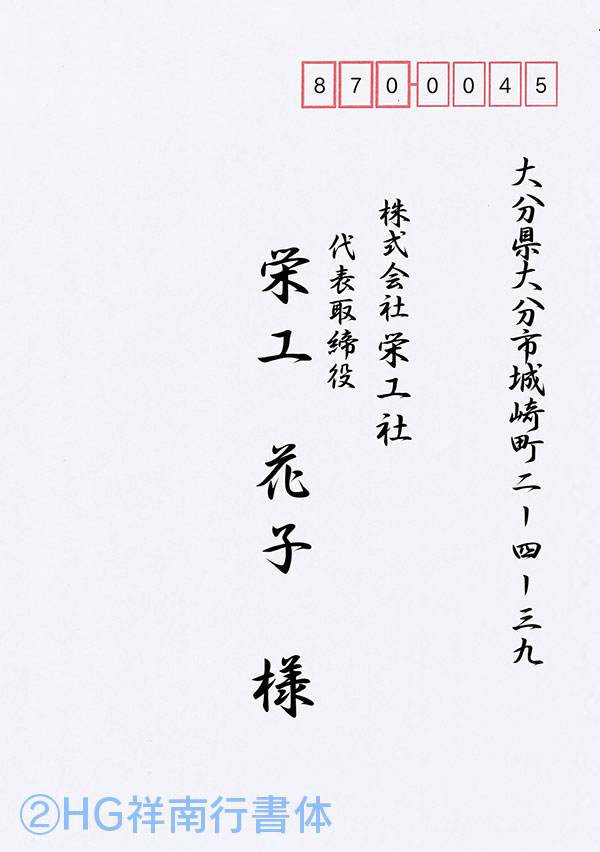 8700045
大分県大分市城崎町二ー四ー三九
株式会社 栄工社
代表取締役
栄工 花子 様
②HG祥南行書体